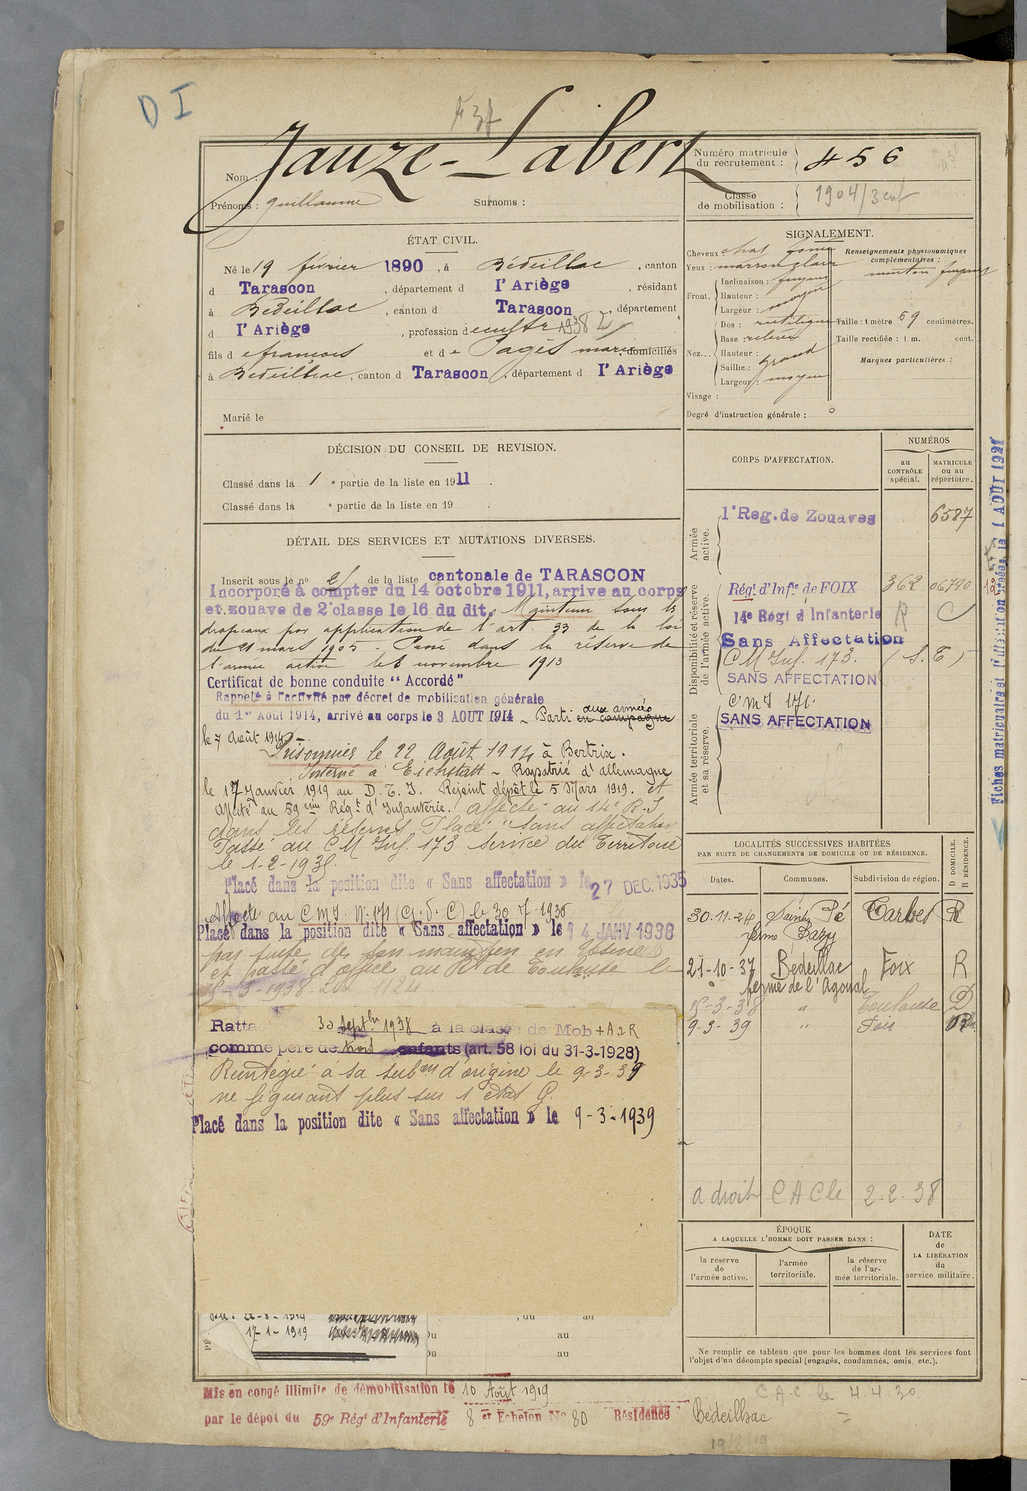 D I
Jauze-Labert
Nom :
Prénoms : Guillaume Surnoms :
Numéro matricule du recrutement : 456
Classe de mobilisation : 1904/3 enf
ÉTAT CIVIL.
Né le 19 février 1890, à Bédeillac, canton
d Tarascon, département d l'Ariège, résidant
à Bédeillac, canton d Tarascon, département
d l'Ariège, profession d
fils d e françois et d e Pagès marie, domiciliés
à Bédeilhac, canton d Tarascon, département d l'Ariège
Marié le
SIGNALEMENT.
Cheveux
Yeux : marron clair
Renseignements physionomiques complémentaires :
menton fuyant
Front.
Inclinaison : fuyant
Hauteur : moyen
Largeur :
Nez...
Dos : rectiligne
Base : relevée
Hauteur :
Saillie : grand
Largeur : moyen
Taille : 1 mètre 59 centimètres.
Taille rectifiée : 1 m. cent.
Marques particulières :
Visage :
Degré d'instruction générale :
DÉCISION DU CONSEIL DE REVISION.
Classé dans la 1e partie de la liste en 1911.
Classé dans la e partie de la liste en 19 .
DÉTAIL DES SERVICES ET MUTATIONS DIVERSES.
Inscrit sous le n° de la liste cantonale de TARASCON
Incorporé à compter du 14 octobre 1911, arrive au corps
et zouave de 2e classe le 16 du dit, Maintenu sous les
drapeaux par application de l'art. 33 de la loi
du 21 mars 1905. Passé dans la réserve de
l'armée active le 8 novembre 1913
Certificat de bonne conduite "Accordé"
Rappelé à l'activité par décret de mobilisation générale
du 1er Août 1914, arrivé au corps le 3 AOUT 1914 - Parti en campagne aux armées
le 7 Août 1914 -
Prisonnier le 22 Août 1914 à Bertrix.
Interné à Eichstatt - Rapatrié d'allemagne
le 17 Janvier 1919 au D. T. I. Rejoint dépôt le 5 Mars 1919. et
affecté au 59ème Régt d'Infanterie. affecté au 14e R.I
dans les réserves Placé "Sans affectation
Passé au CM Inf. 173 service du Territoire
le 1-2-193
Placé dans la position dite « Sans affectation » le 27 DEC. 1935
Affecté au C M I. N° 171 (G. S. C) le 30 7 1936
Placé dans la position dite « Sans affectation » le 14 JANV 1938
et passé d'office au Rt de Toulouse le
15-3-1938.
Ratta 30 Septbre 1938 à la classe de Mob + A 2 R
comme père de trois enfants (art. 58 loi du 31-3-1928)
Réintégré à sa subon d'origine le 9-3-39
ne figurant plus sur l'état G.
Placé dans la position dite « Sans affectation » le 9-3-1939
CORPS D'AFFECTATION.
NUMÉROS
au CONTRÔLE spécial.
MATRICULE ou au répertoire.
Armée active.
1er Reg. de Zouaves 6587
Disponibilité et réserve de l'armée active.
Régt d'Infie de FOIX 362 06790
14e Régt d'Infanterie
Sans Affectation
CM Inf. 173. (S. T)
SANS AFFECTATION
C M I 171.
SANS AFFECTATION
Armée territoriale et sa réserve.
Fiches matriculaire et d'affectation créées le 1 AOUT 1921
LOCALITÉS SUCCESSIVES HABITÉES
PAR SUITE DE CHANGEMENTS DE DOMICILE OU DE RÉSIDENCE.
Dates. Communes. Subdivision de région. D DOMICILE. R RÉSIDENCE.
30-11-24 Saint Pé Tarbes R
21-10-37 Bédeillac Foix R
ferme de l'Agoual
15-3-38 " Toulouse D
9-3-39 " Foix
a droit C A C le 2-2-38
ÉPOQUE
A LAQUELLE L'HOMME DOIT PASSER DANS :
la réserve de l'armée active.
l'armée territoriale.
la réserve de l'armée territoriale.
DATE de LA LIBÉRATION du service militaire.
Ne remplir ce tableau que pour les hommes dont les services font
l'objet d'un décompte spécial (engagés, condamnés, omis, etc.).
22-8-1914 , du au
17-1-1919 Du au
Du au
Mis en congé illimité de démobilisation le 10 Août 1919
par le dépôt du 59e Régt d'Infanterie 8e Echelon No 80 Résidence Bédeilhac
C.A.C. le 4.4.30